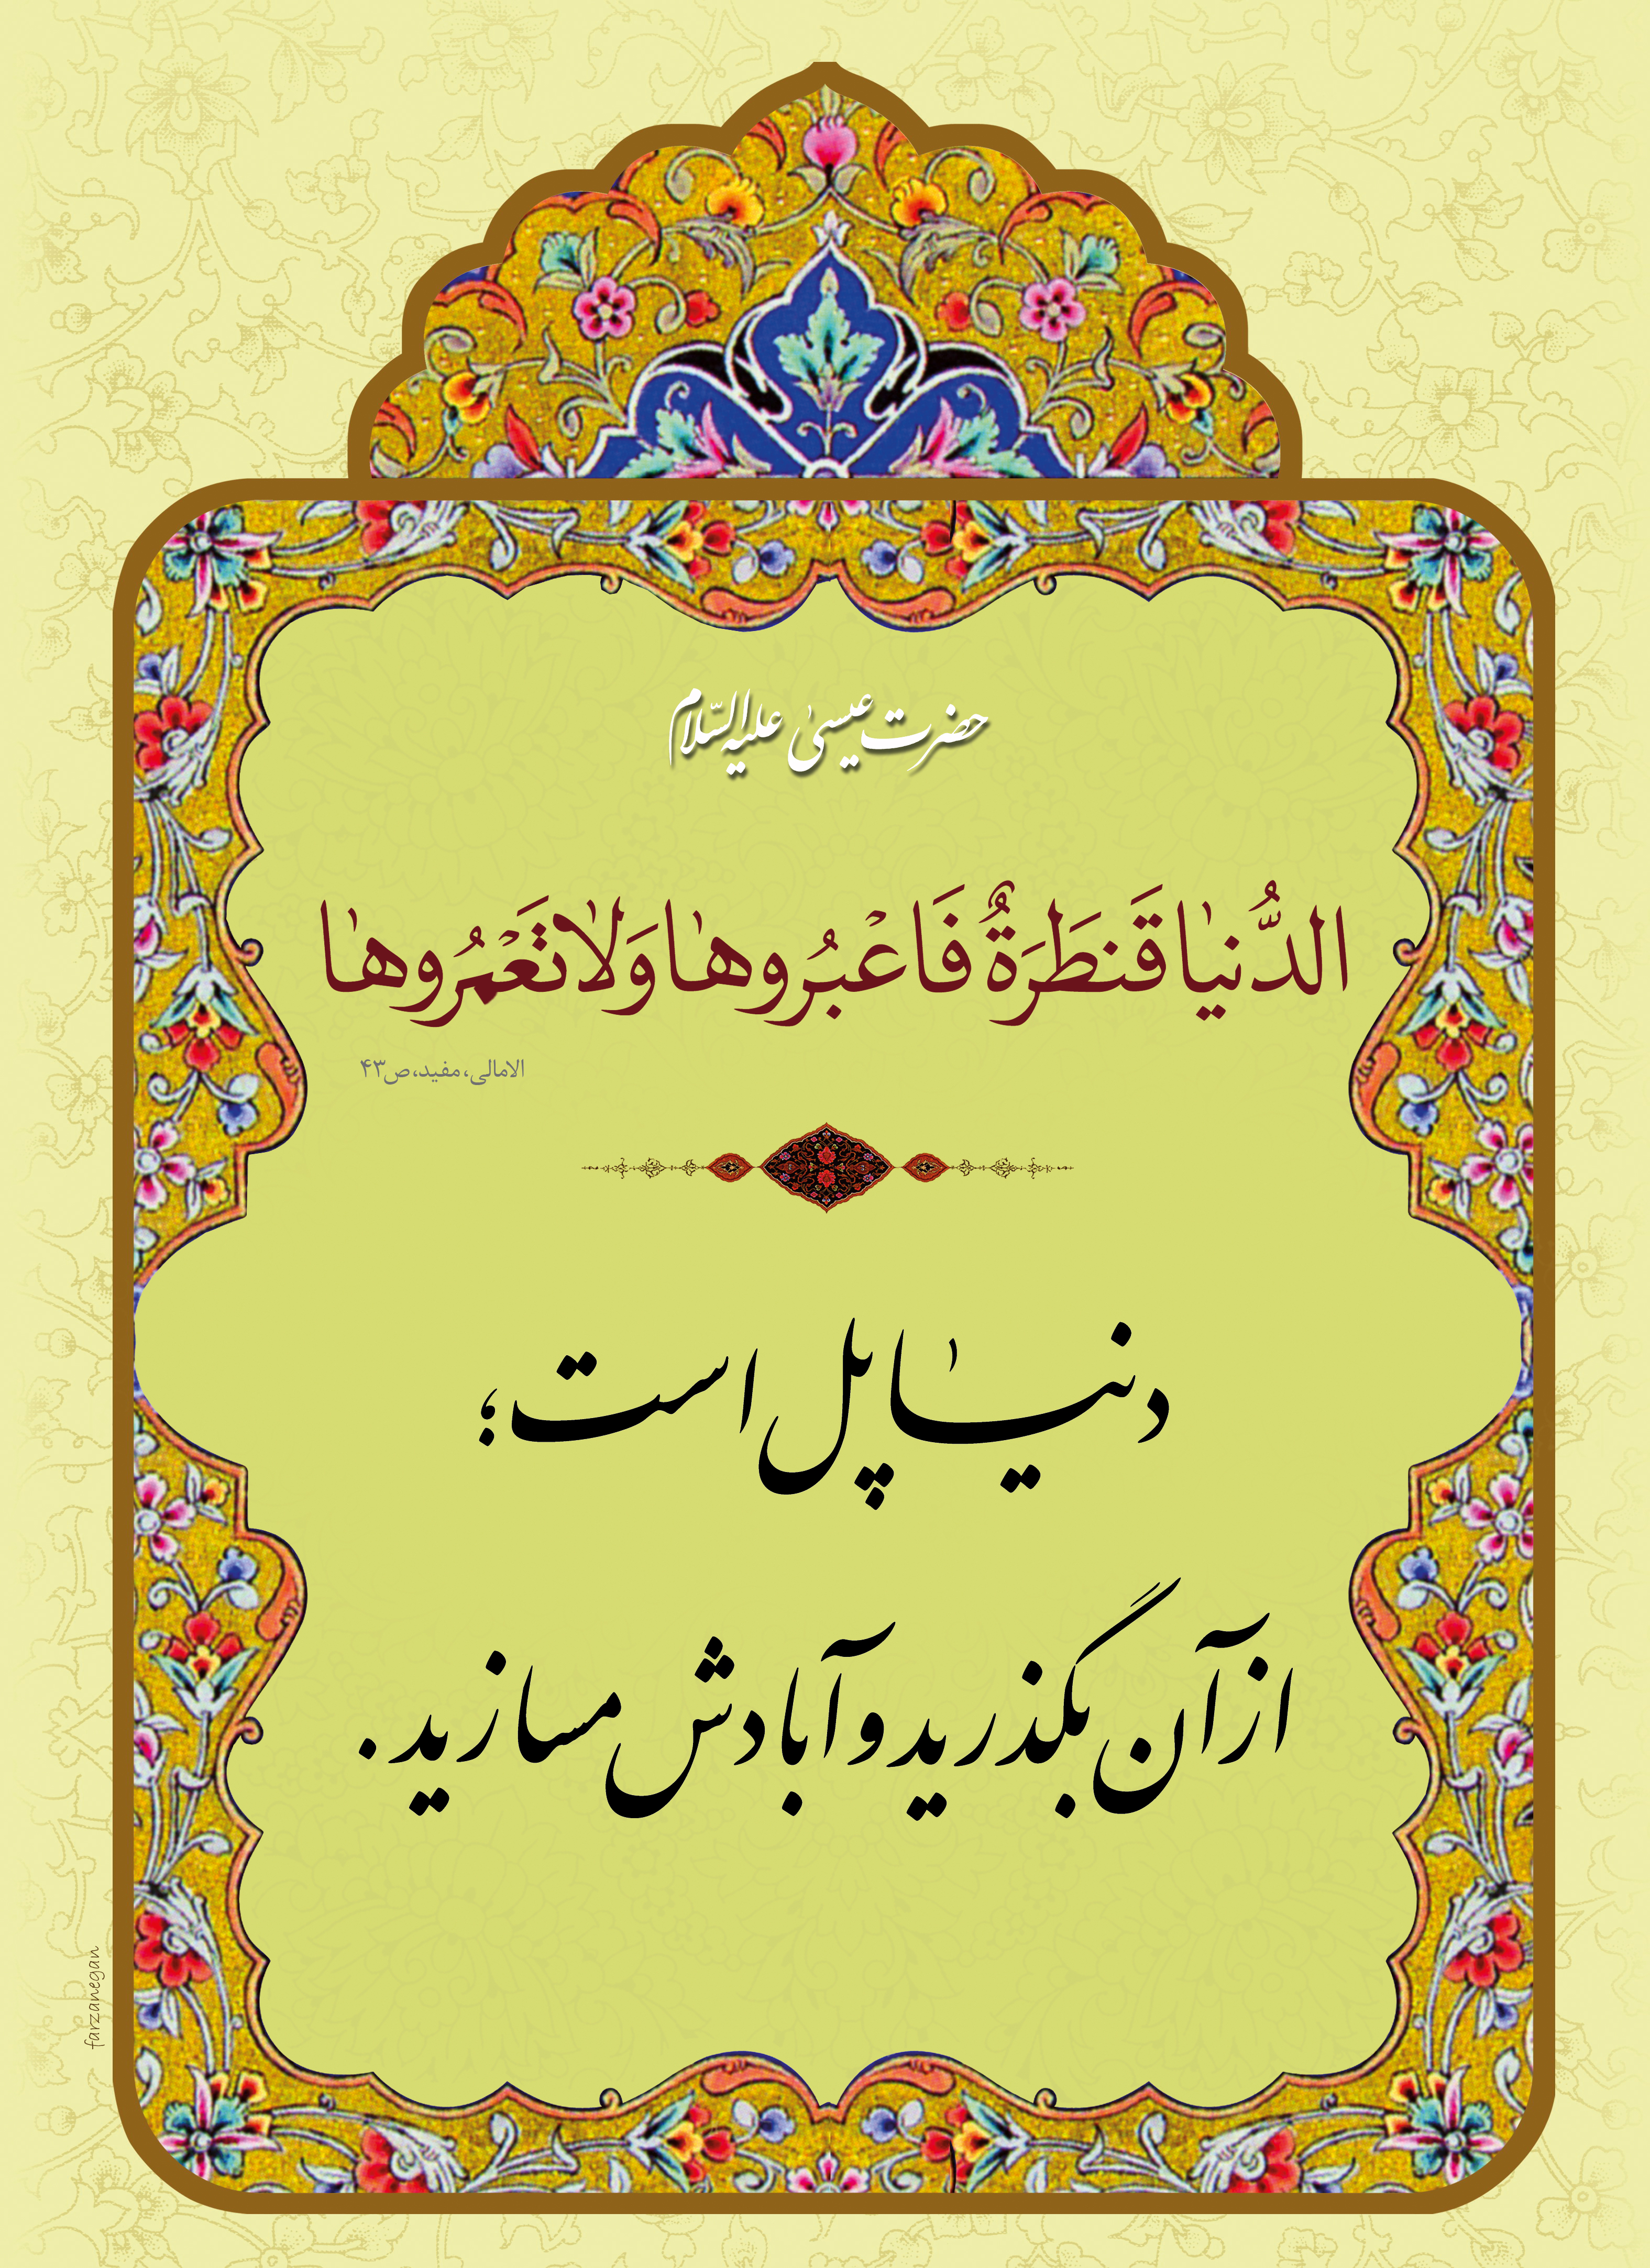 حضرت عیسیٰ علیه السّلام
الدُّنیٰا قَنطَرَةٌ فَاعْبُروهٰا وَلاٰتَعْمُروهٰا
الامالی، مفید، ص۴۳
دنیٰا پل است؛
از آن بگذرید و آبادش مسازید.
farzanegan